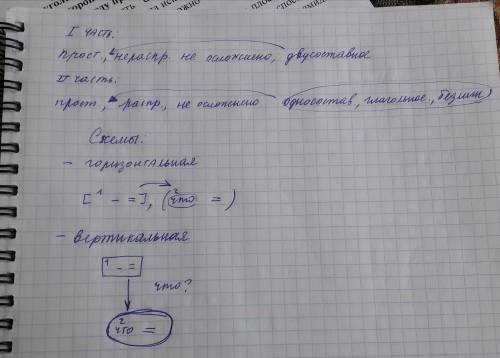 I часть:
прост, нераспр. не осложнено, двусоставное
II часть:
прост, распр, не осложнено односостав, глагольное, безлич
Схемы:
- горизонтальная
[¹ - =], (²что =)
- вертикальная
¹ - =
что?
²что =